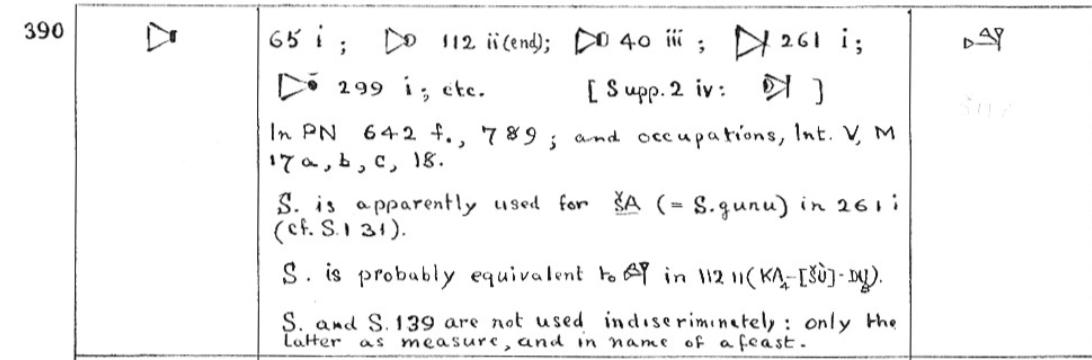 390
65 i ; 112 ii (end); 40 iii ; 261 i;
299 i; etc. [ Supp. 2 iv: ]
In PN 642 f., 789 ; and occupations, Int. V, M
17 a, b, c, 18.
S. is apparently used for ŠA (= S.gunu) in 261 i
(cf. S. 131).
S. is probably equivalent to in 112 11 (KA₄-[šù]-DU₈).
S. and S. 139 are not used indiscriminately : only the
latter as measure, and in name of a feast.